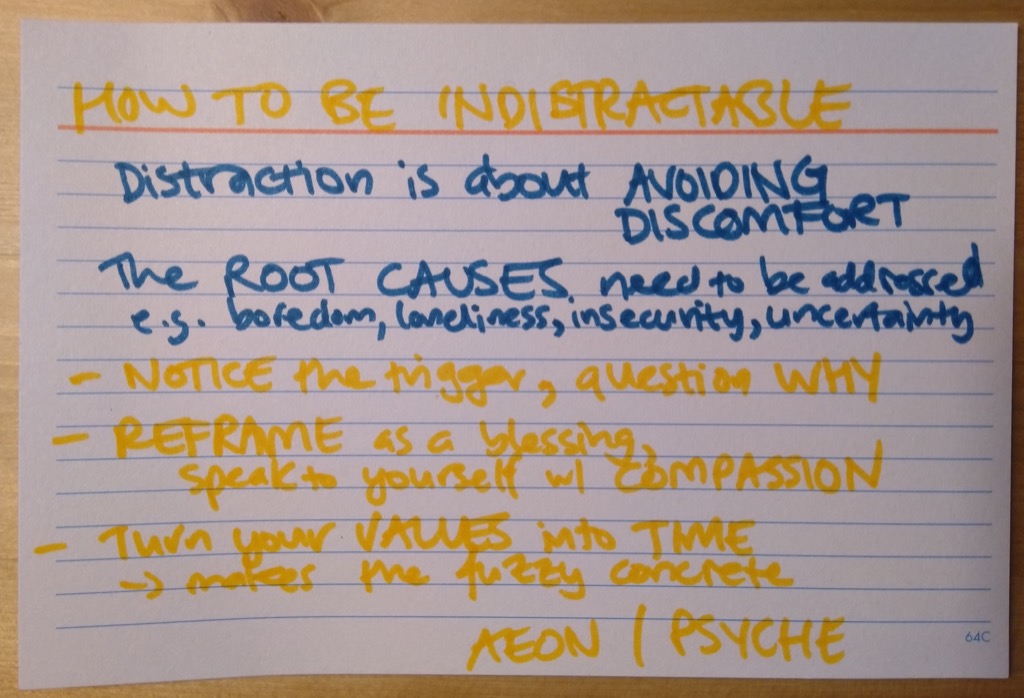 HOW TO BE INDISTRACTABLE
Distraction is about AVOIDING
DISCOMFORT
The ROOT CAUSES need to be addressed
e.g. boredom, loneliness, insecurity, uncertainty
- NOTICE the trigger, question WHY
- REFRAME as a blessing,
speak to yourself w/ COMPASSION
- Turn your VALUES into TIME
-> makes the fuzzy concrete
AEON / PSYCHE
64C